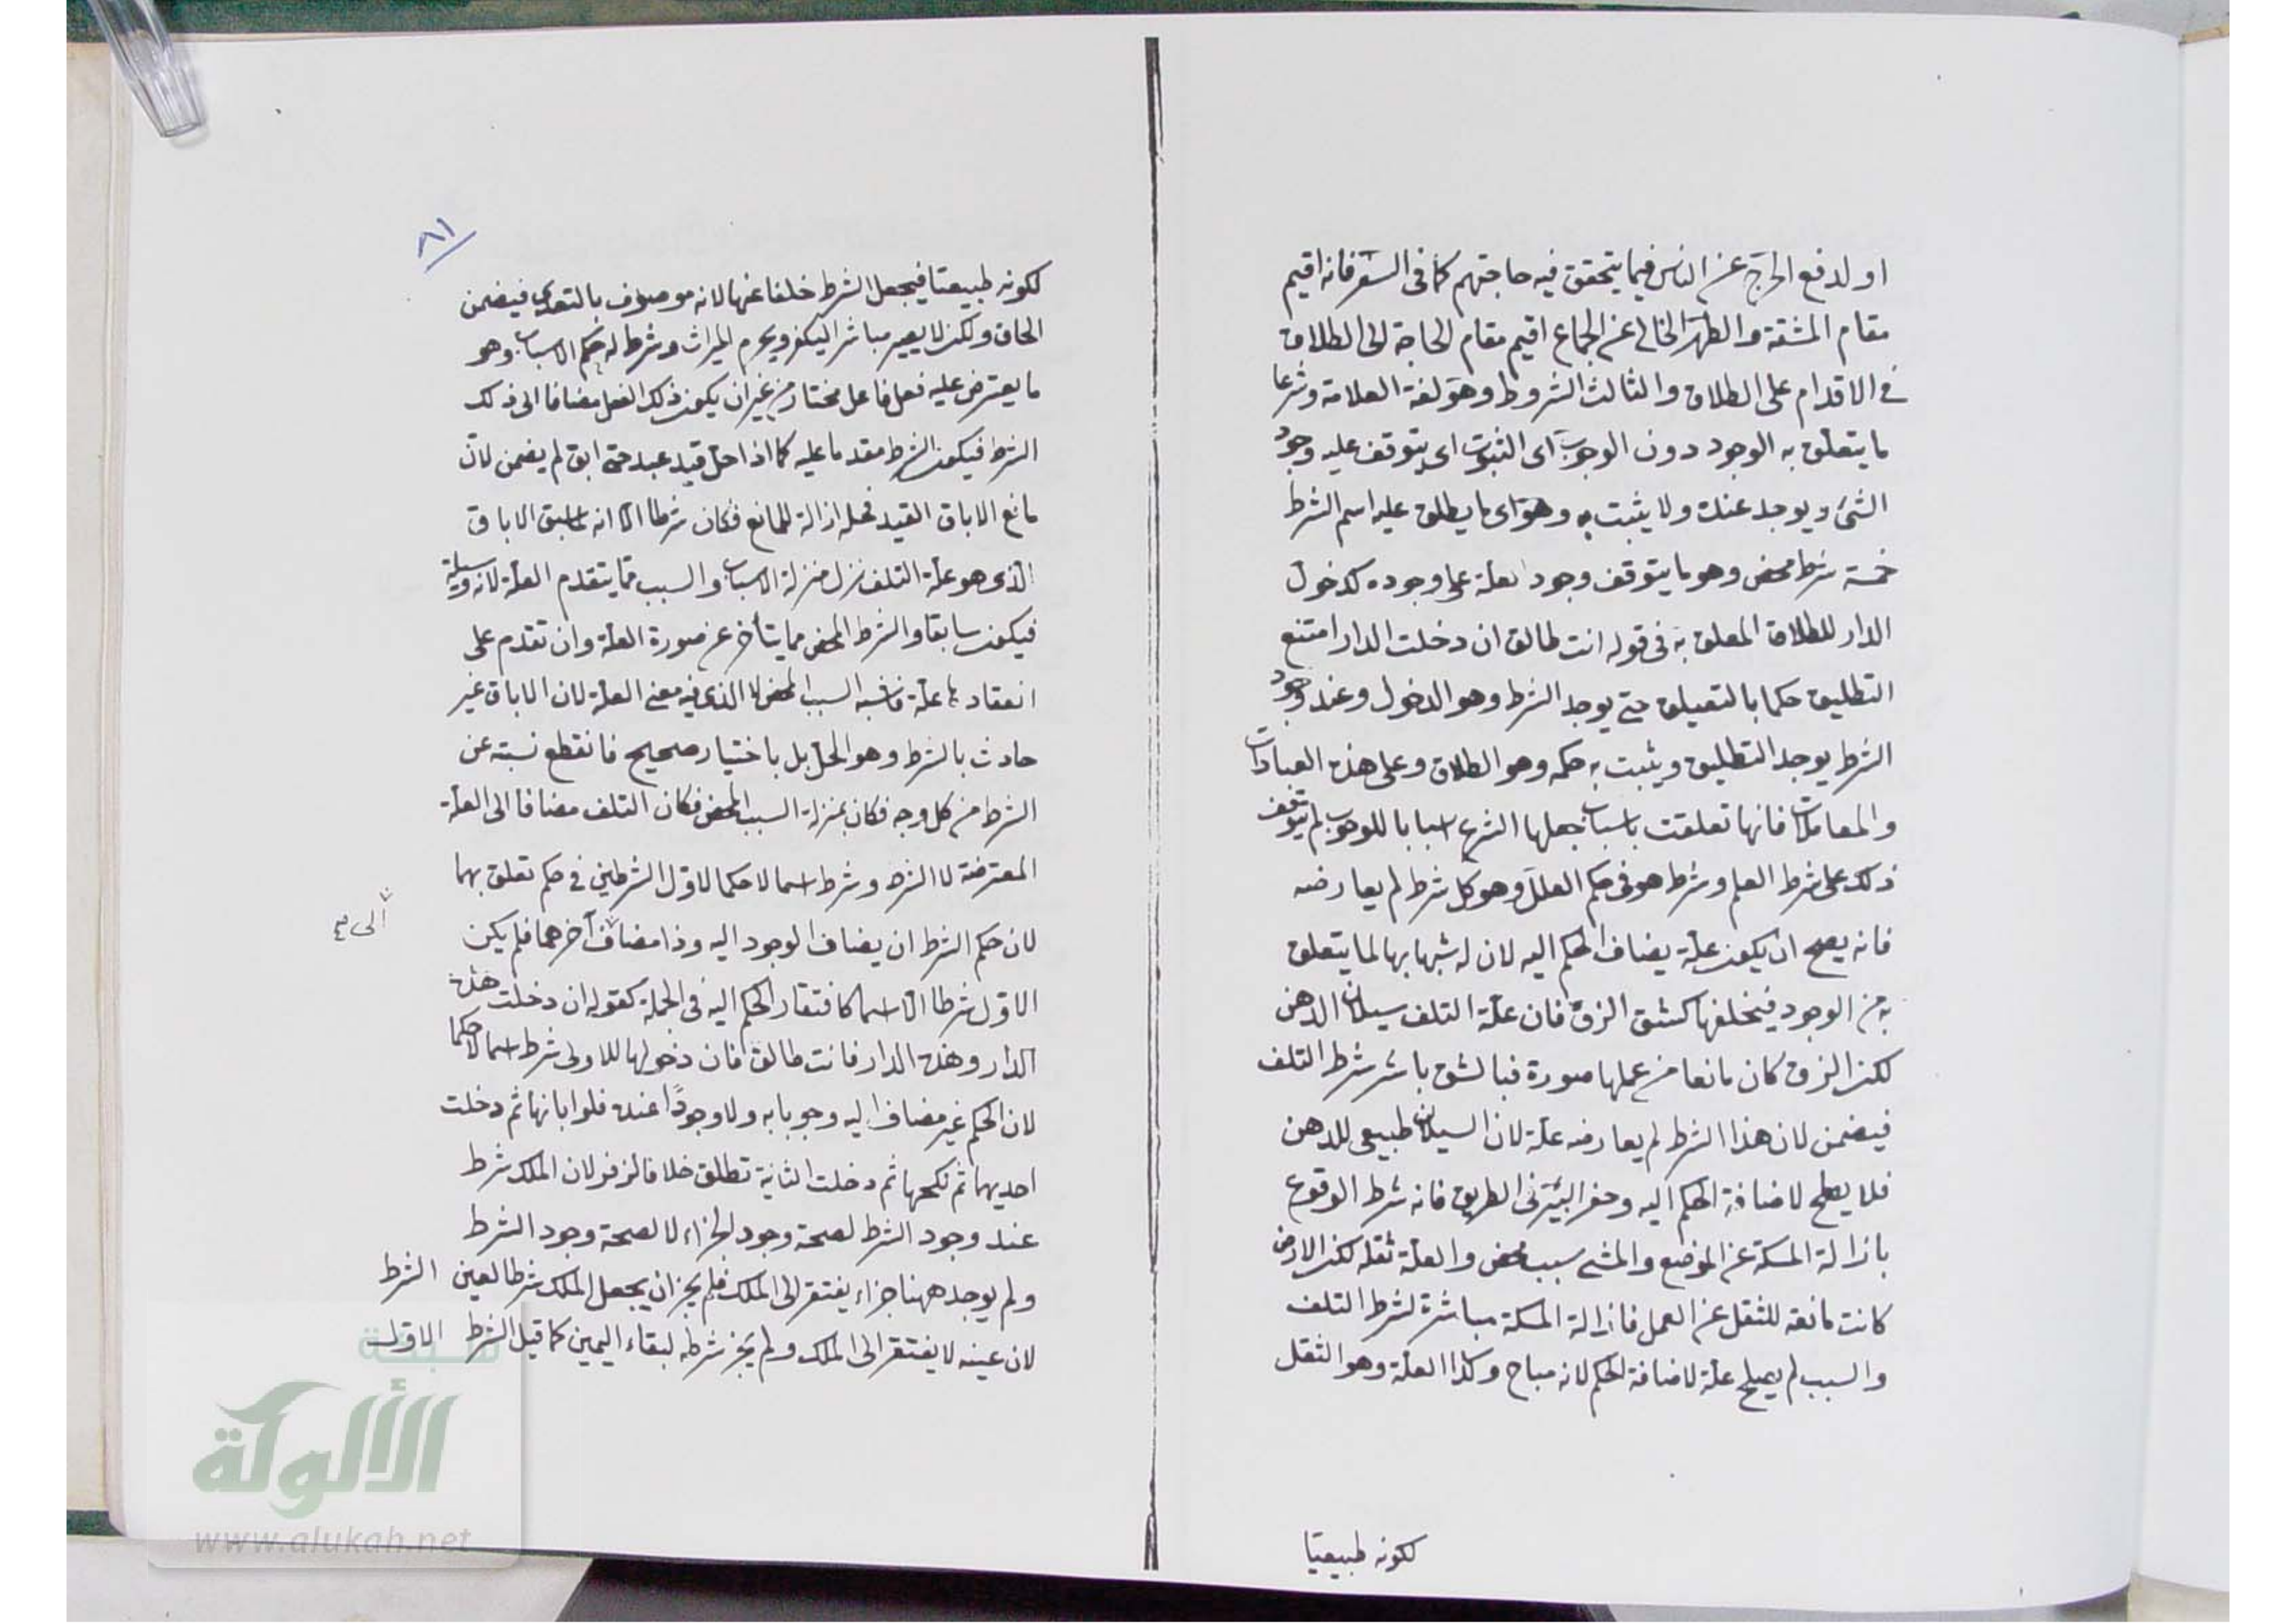 او لدفع الحرج عن الناس فيما يتحقق فيه حاجتهم كما في السفر فانه اقيم
مقام المشقة والطهر الخالي عن الجماع اقيم مقام الحاجة الى الطلاق
في الاقدام على الطلاق والثالث الشروط وهو لغة العلامة وشرعا
ما يتعلق به الوجود دون الوجوب اى الثبوت اى يتوقف عليه وجود
الشئ ويوجد عنده ولا يثبت به وهو اى ما يطلق عليه اسم الشرط
خمسة شرط محض وهو ما يتوقف وجود العلة على وجوده كدخول
الدار للطلاق المعلق به فى قوله انت طالق ان دخلت الدار امتنع
التطليق حكما بالتعليق حتى يوجد الشرط وهو الدخول وعند وجود
الشرط يوجد التطليق ويثبت به حكمه وهو الطلاق وعلى هذه العبادات
والمعاملات فانها تعلقت باسباب جعلها الشرع اسبابا للوجوب ثم يتوقف
ذلك على شرط العلم وشرط هو فى حكم العلل وهو كل شرط لم يعارضه
فانه يصح ان يكون علة يضاف الحكم اليه لان له شبها بها لما يتعلق
به من الوجود فيخلفها كشق الزق فان علة التلف سيلان الدهن
لكن الزق كان مانعا من عملها صورة فبالشق باشر شرط التلف
فيضمن لان هذا الشرط لم يعارضه علة لان السيلان طبيعى للدهن
فلا يصلح لاضافة الحكم اليه وحفر البئر فى الطريق فانه شرط الوقوع
بازالة المسكة عن الموضع والمشى سبب محض والعلة ثقله لكن الارض
كانت مانعة للثقل عن العمل فازالة المسكة مباشرة لشرط التلف
والسبب لم يصلح علة لاضافة الحكم لانه مباح وكذا العلة وهو الثقل
لكونه طبيعيا
٨١
لكونه طبيعيا فيجعل الشرط خلفا عنها لانه موصوف بالتعدى فيضمن
الحافر ولكن لا يصير مباشرا ليكفر ويحرم الميراث وشرط له حكم الاسباب وهو
ما يعترض عليه فعل فاعل مختار من غير ان يكون ذلك الفعل مضافا الى ذلك
الشرط فيكون الشرط مقدما عليه كما اذا حل قيد عبد حتى ابق لم يضمن لان
مانع الاباق القيد فحله ازالة للمانع فكان شرطا الا انه لما سبق الاباق
الذى هو علة التلف نزل منزلة الاسباب والسبب مما يتقدم العلة لانه وسيلة
فيكون سابقا والشرط المحض مما يتأخر عن صورة العلة وان تقدم على
انعقادها علة فاشبه السبب المحض لا الذى فيه معنى العلة لان الاباق غير
حادث بالشرط وهو الحل بل باختيار صحيح فانقطع نسبته عن
الشرط من كل وجه فكان بمنزلة السبب المحض فكان التلف مضافا الى العلة
المعترضة لا الشرط وشرط اسما لا حكما لاول الشرطين في حكم تعلق بهما
لان حكم الشرط ان يضاف الوجود اليه وذا مضاف آخرهما فلم يكن
الى
الاول شرطا الا اسما كافتقار الحكم اليه فى الجملة كقوله ان دخلت هذه
الدار وهذه الدار فانت طالق فان دخولها للاولى شرط اسما لا حكما
لان الحكم غير مضاف اليه وجوبا به ولا وجودًا عنده فلو ابانها ثم دخلت
احديهما ثم نكحها ثم دخلت الثانية تطلق خلافا لزفر لان الملك شرط
عند وجود الشرط لصحة وجود الجزاء لا لصحة وجود الشرط
ولم يوجد ههنا جزاء يفتقر الى الملك فلم يجز ان يجعل الملك شرطا لعين الشرط
لان عينه لا يفتقر الى الملك ولم يجز شرطه لبقاء اليمين كما قبل الشرط الاول
شبكة
الألوكة
www.alukah.net